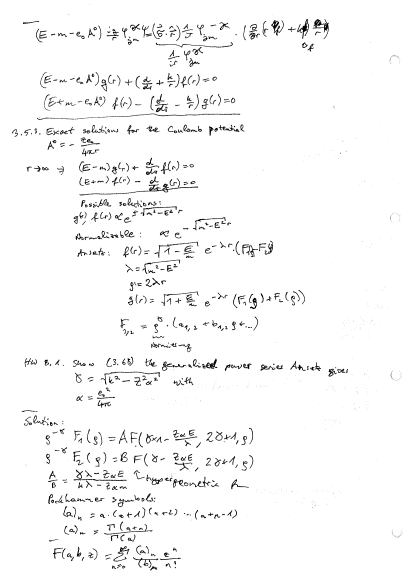 (E-m-e₀A⁰) i g/r φ_jm^ϰ = (σ·r̂) 1/r φ_jm^-ϰ · (
1/r φ_jm^ϰ
(E-m-e₀A⁰) g(r) + (d/dr + k/r) f(r) = 0
(E+m-e₀A⁰) f(r) - (d/dr - k/r) g(r) = 0
3.5.3. Exact solutions for the Coulomb potential
A⁰ = - Ze₀/4πr
r→∞ ⇒ (E-m) g(r) + d/dr f(r) = 0
(E+m) f(r) - d/dr g(r) = 0
Possible solutions:
g(r), f(r) ∝ e^±√(m²-E²) r
Normalizable: ∝ e^-√(m²-E²) r
Ansatz: f(r) = √(1-E/m) e^-λr (F₁(ρ)-F₂(ρ))
λ = √(m²-E²)
ρ = 2λr
g(r) = √(1+E/m) e^-λr (F₁(ρ)+F₂(ρ))
F_1/2 = ρ^γ · (a_1,2 + b_1,2 ρ + ...)
HW 8.1. Show (3.68) the generalized power series Ansatz gives
γ = √(k²-Z²α²) with
α = e₀²/4π
Solution:
ρ^-γ F₁(ρ) = A F(γ+1 - ZαE/λ, 2γ+1, ρ)
ρ^-γ F₂(ρ) = B F(γ - ZαE/λ, 2γ+1, ρ)
A/B = (γλ-ZαE)/(kλ-Zαm) ↑ hypergeometric
Pochhammer symbols:
(a)_n = a·(a+1)(a+2)...(a+n-1)
(a)_n = Γ(a+n)/Γ(a)
F(a,b,z) = Σ_n=0^∞ (a)_n/(b)_n z^n/n!